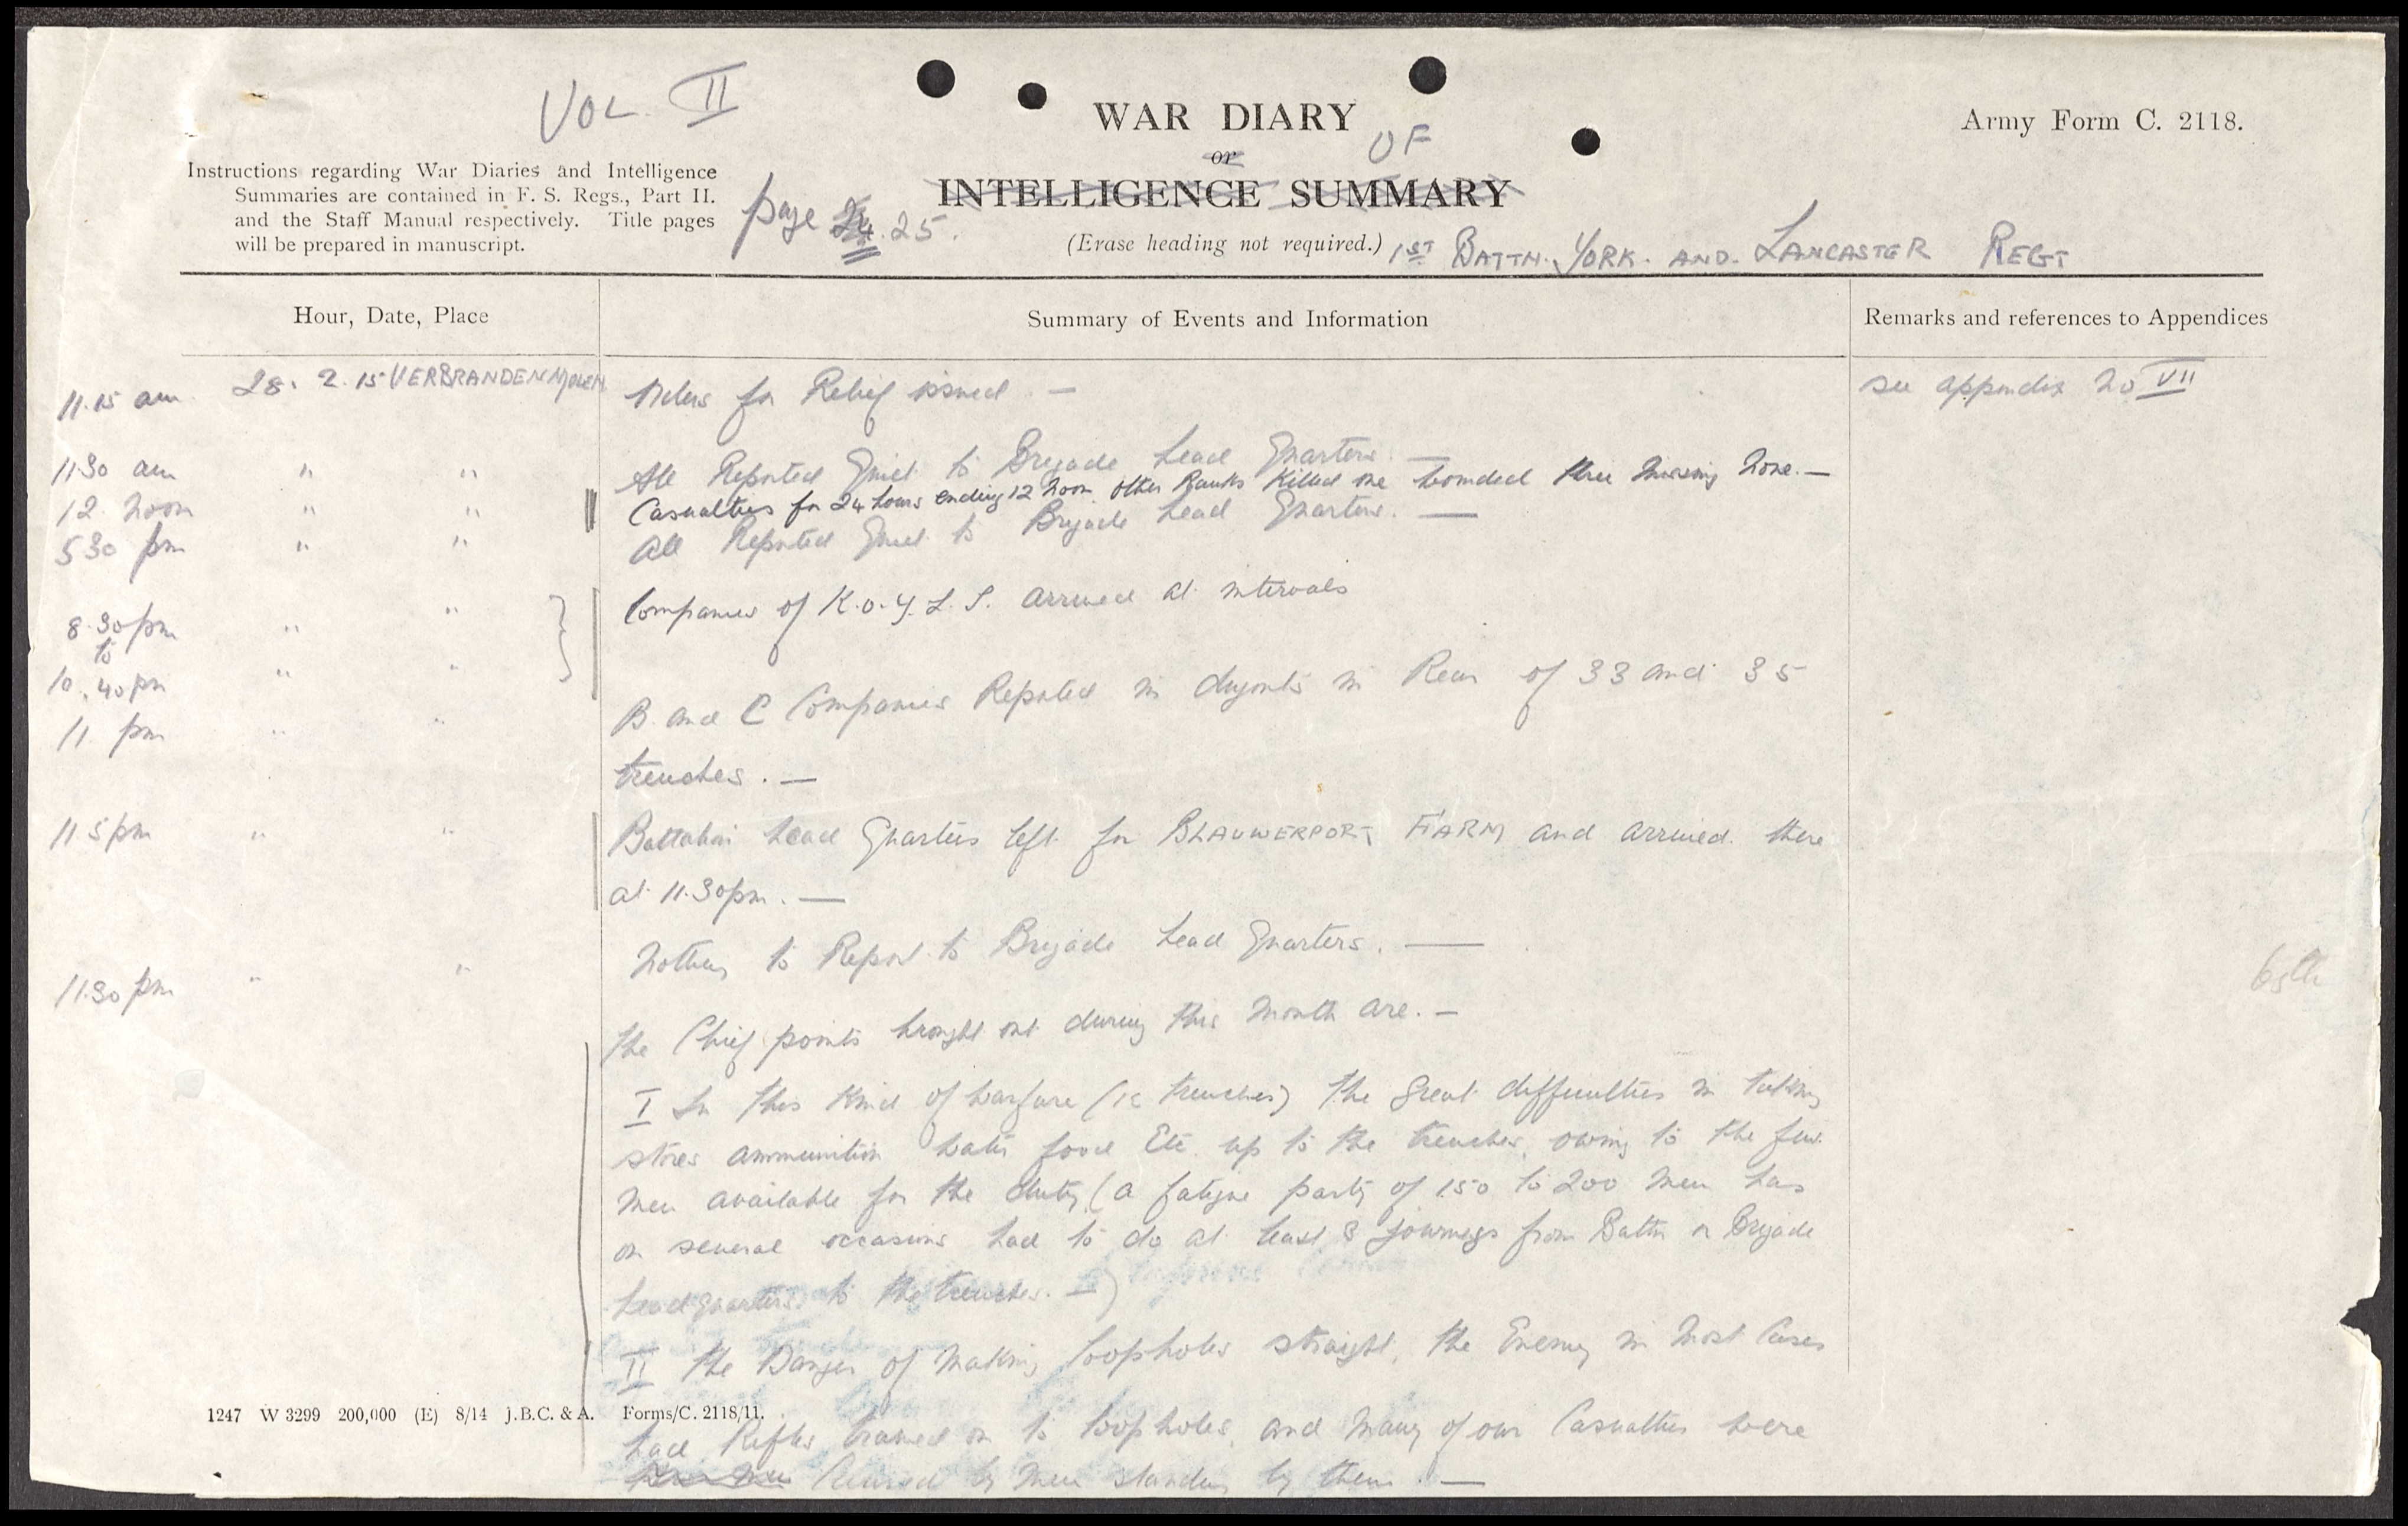 VOL. II
WAR DIARY
OF
or
Army Form C. 2118.
Instructions regarding War Diaries and Intelligence
Summaries are contained in F. S. Regs., Part II.
and the Staff Manual respectively. Title pages
will be prepared in manuscript.
page 24. 25.
INTELLIGENCE SUMMARY
(Erase heading not required.) 1ST BATTN. YORK. AND. LANCASTER REGT
Hour, Date, Place
Summary of Events and Information
Remarks and references to Appendices
11.15 am 28. 2. 15 VERBRANDENMOLEN Orders for Relief issued. — see appendix No VII
11.30 am " " All Reported Quiet to Brigade Head Quarters. —
12. Noon " " Casualties for 24 hours ending 12 Noon. Other Ranks Killed one Wounded three Missing None. —
5 30 pm " " All Reported Quiet to Brigade Head Quarters. —
8.30 pm " " Companies of K.O.Y.L.I. arrived at intervals
to
10.40 pm " "
11. pm " " B and C Companies Reported in dugouts in Rear of 33 and 35
trenches. —
11 5 pm " " Battalion Head Quarters left for BLAUWEPORT FARM and arrived there
at 11.30 pm. —
11.30 pm " " Nothing to Report to Brigade Head Quarters. —
65th
The Chief points brought out during this Month are. —
I In this Kind of warfare (ie trenches) the great difficulties in taking
stores ammunition water food Etc. up to the trenches, owing to the few
men available for the duty (a fatigue party of 150 to 200 men has
on several occasions had to do at least 3 journeys from Battn or Brigade
headquarters to the trenches.)
II The Danger of Making loopholes straight, the Enemy in most Cases
had Rifles trained on to loopholes, and many of our Casualties were
Caused by men standing by them. —
1247 W 3299 200,000 (E) 8/14 J.B.C. & A. Forms/C. 2118/11.